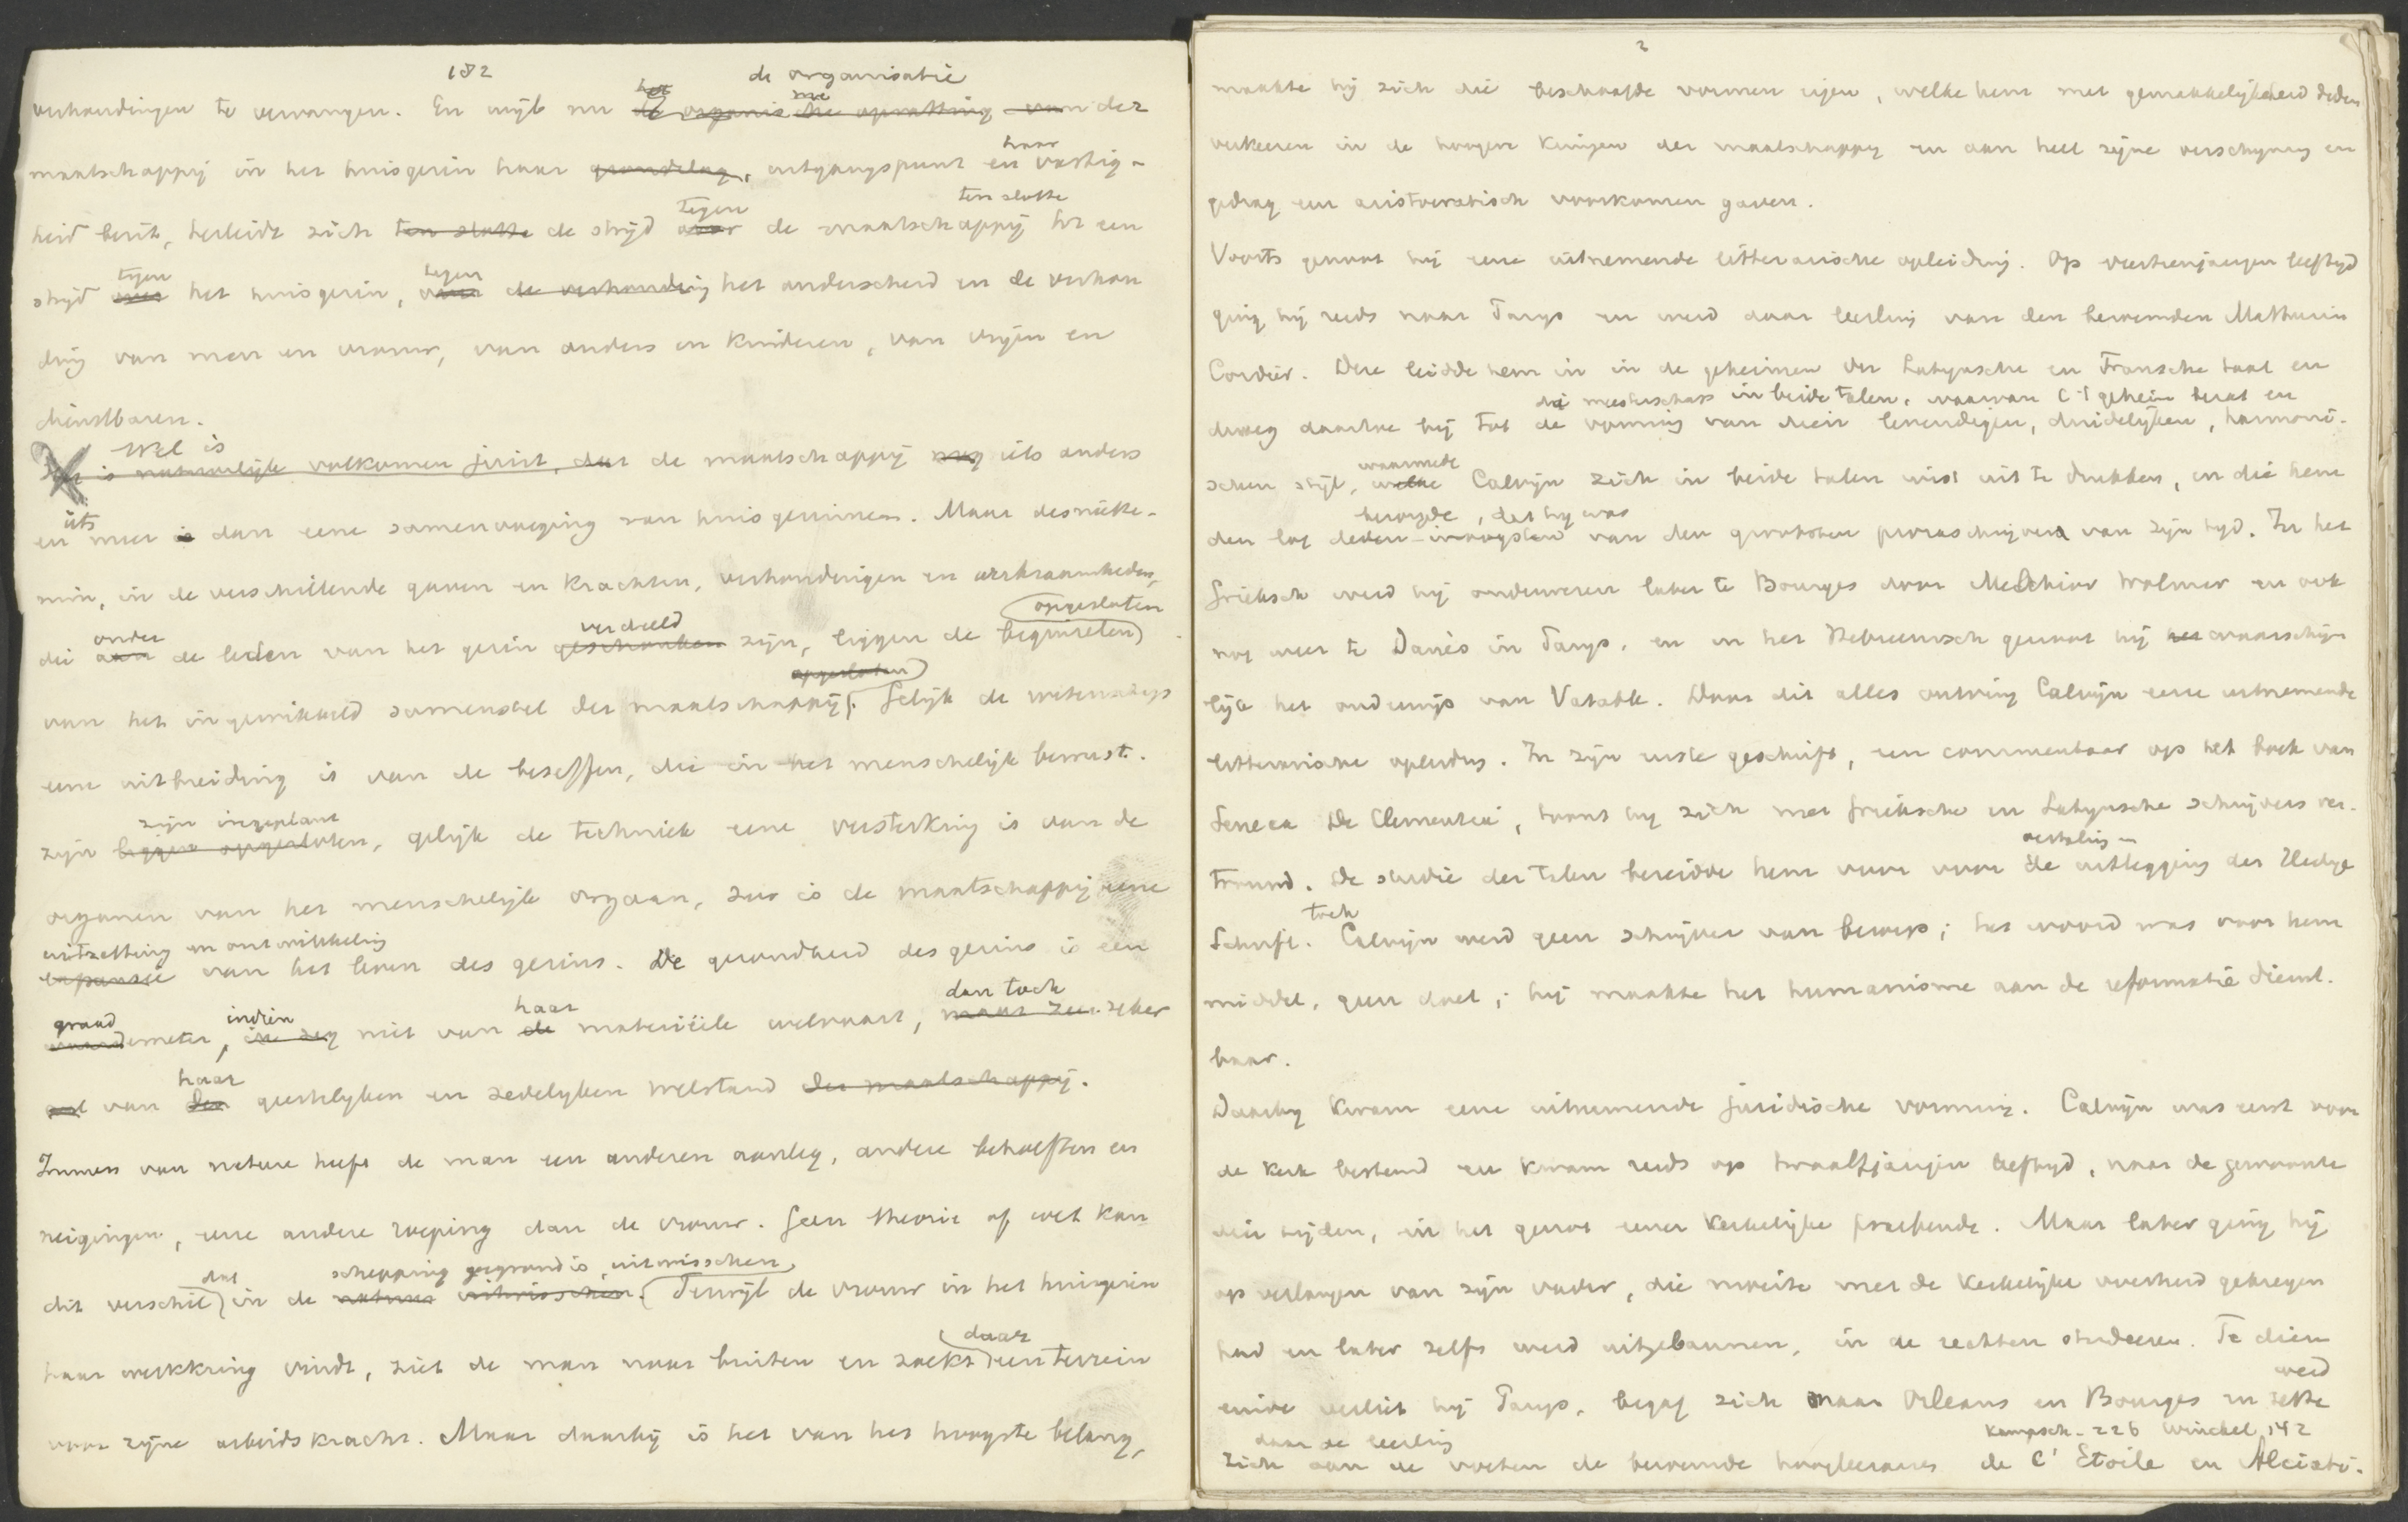 182
de organisatie
het me
verhoudingen te vervangen. En wijl nu de organische opvatting van der
haar
maatschappij in het huisgezin haar grondslag, uitgangspunt en vastig-
tegen ten slotte
heid bezit, herleidt zich ten slotte de strijd over de maatschappij tot een
tegen tegen
strijd over het huisgezin, over de verhouding het onderscheid en de verhou
ding van man en vrouw, van ouders en kinderen, van vrijen en
dienstbaren.
Wel is
Het is natuurlijk volkomen juist, dat de maatschappij nog iets anders
iets
en meer is dan eene samenvoeging van huisgezinnen. Maar desniette-
min, in de verschillende gaven en krachten, verhoudingen en werkzaamheden,
onder verdeeld opgesloten
die aan de leden van het gezin geschonken zijn, liggen de beginselen
opgesloten
van het ingewikkeld samenstel der maatschappij. Gelijk de wetenschap
eene uitbreiding is van de beseffen, die in het menschelijk bewust-
zijn ingeplant
zijn liggen opgesloten, gelijk de techniek eene versterking is van de
organen van het menschelijk orgaan, zoo is de maatschappij eene
uitzetting en ontwikkeling
expansie van het leven des gezins. De gezondheid des gezins is een
graad indien haar dan toch
waardemeter, ik zeg niet van de materiëele welvaart, maar zeer zeker
haar
wel van den geestelyken en zedelyken welstand der maatschappij.
Immers van nature heeft de man een anderen aanleg, andere behoeften en
neigingen, eene andere roeping dan de vrouw. Geen theorie of wet kan
dat schepping gegrond is, uitwisschen.
dit verschil in de natuur uitwisschen. Terwijl de vrouw in het huisgezin
daar
haar werkkring vindt, ziet de man naar buiten en zoekt een terrein
voor zijne arbeidskracht. Maar daarbij is het van het hoogste belang,
2
maakte hij zich die beschaafde vormen eigen, welke hem met gemakkelijkheid deden
verkeeren in de hoogere kringen der maatschappij en aan heel zijne verschijning en
gedrag een aristocratisch voorkomen gaven.
Voorts genoot hij eene uitnemende litterarische opleiding. Op veertienjarigen leeftyd
ging hij reeds naar Parys en werd daar leerling van den beroemden Mathurin
Cordier. Deze leidde hem in in de geheimen der Latynsche en Fransche taal en
die meesterschap in beide talen, waarvan C 't geheim bezat en
droeg daardoor bij tot de vorming van dien levendigen, duidelijken, harmoni-
waarmede
schen stijl, welke Calvijn zich in beide talen wist uit te drukken, en die hem
bewijst, dat hij was
den lof deden van den grootsten prozaschrijvers van zijn tyd. In het
Grieksch werd hij onderwezen later te Bourges door Melchior Wolmar en ook
nog weer te Danès in Parys, en in het Hebreeuwsch genoot hij het waarschijn
lijk het onderwijs van Vatable. Door dit alles ontving Calvijn eene uitnemende
litterarische opleiding. In zijn eerste geschrift, een commentaar op het boek van
Seneca De Clementia, toont hij zich met Grieksche en Latynsche schrijvers ver-
vertaling en
trouwd. De studie der talen bereidde hem voor voor de uitlegging der Heilige
toch
Schrift. Calvijn werd geen schrijver van beroep; het woord was voor hem
middel, geen doel; hij maakte het humanisme aan de reformatie dienst-
baar.
Daarbij kwam eene uitnemende juridische vorming. Calvijn was eerst voor
de kerk bestemd en kwam reeds op twaalfjarigen leeftyd, naar de gewoonte
dier tijden, in het genot eener kerkelijke praebende. Maar later ging hij
op verlangen van zijn vader, die moeite met de kerkelijke overheid gekregen
had en later zelfs werd uitgebannen, in de rechten studeeren. Te dien
werd
einde verliet hij Parys, begaf zich naar Orleans en Bourges en zette
Kampsch. 226 Winckel, 142
daar de leerling
zich aan de voeten de beroemde hoogleeraars de l' Etoile en Alciati.